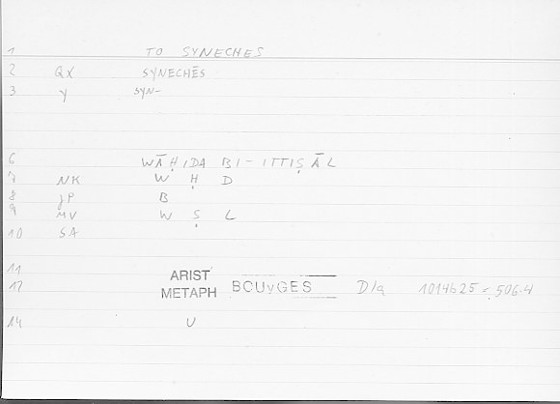 1 TO SYNECHES
2 QX SYNECHĒS
3 Y SYN-
6 WĀḤIDA BI-ITTIṢĀL
7 NK W Ḥ D
8 JP B
9 MV W Ṣ L
10 SA
11 ARIST
12 METAPH BOUYGES D/a 1014b25 = 506.4
14 U